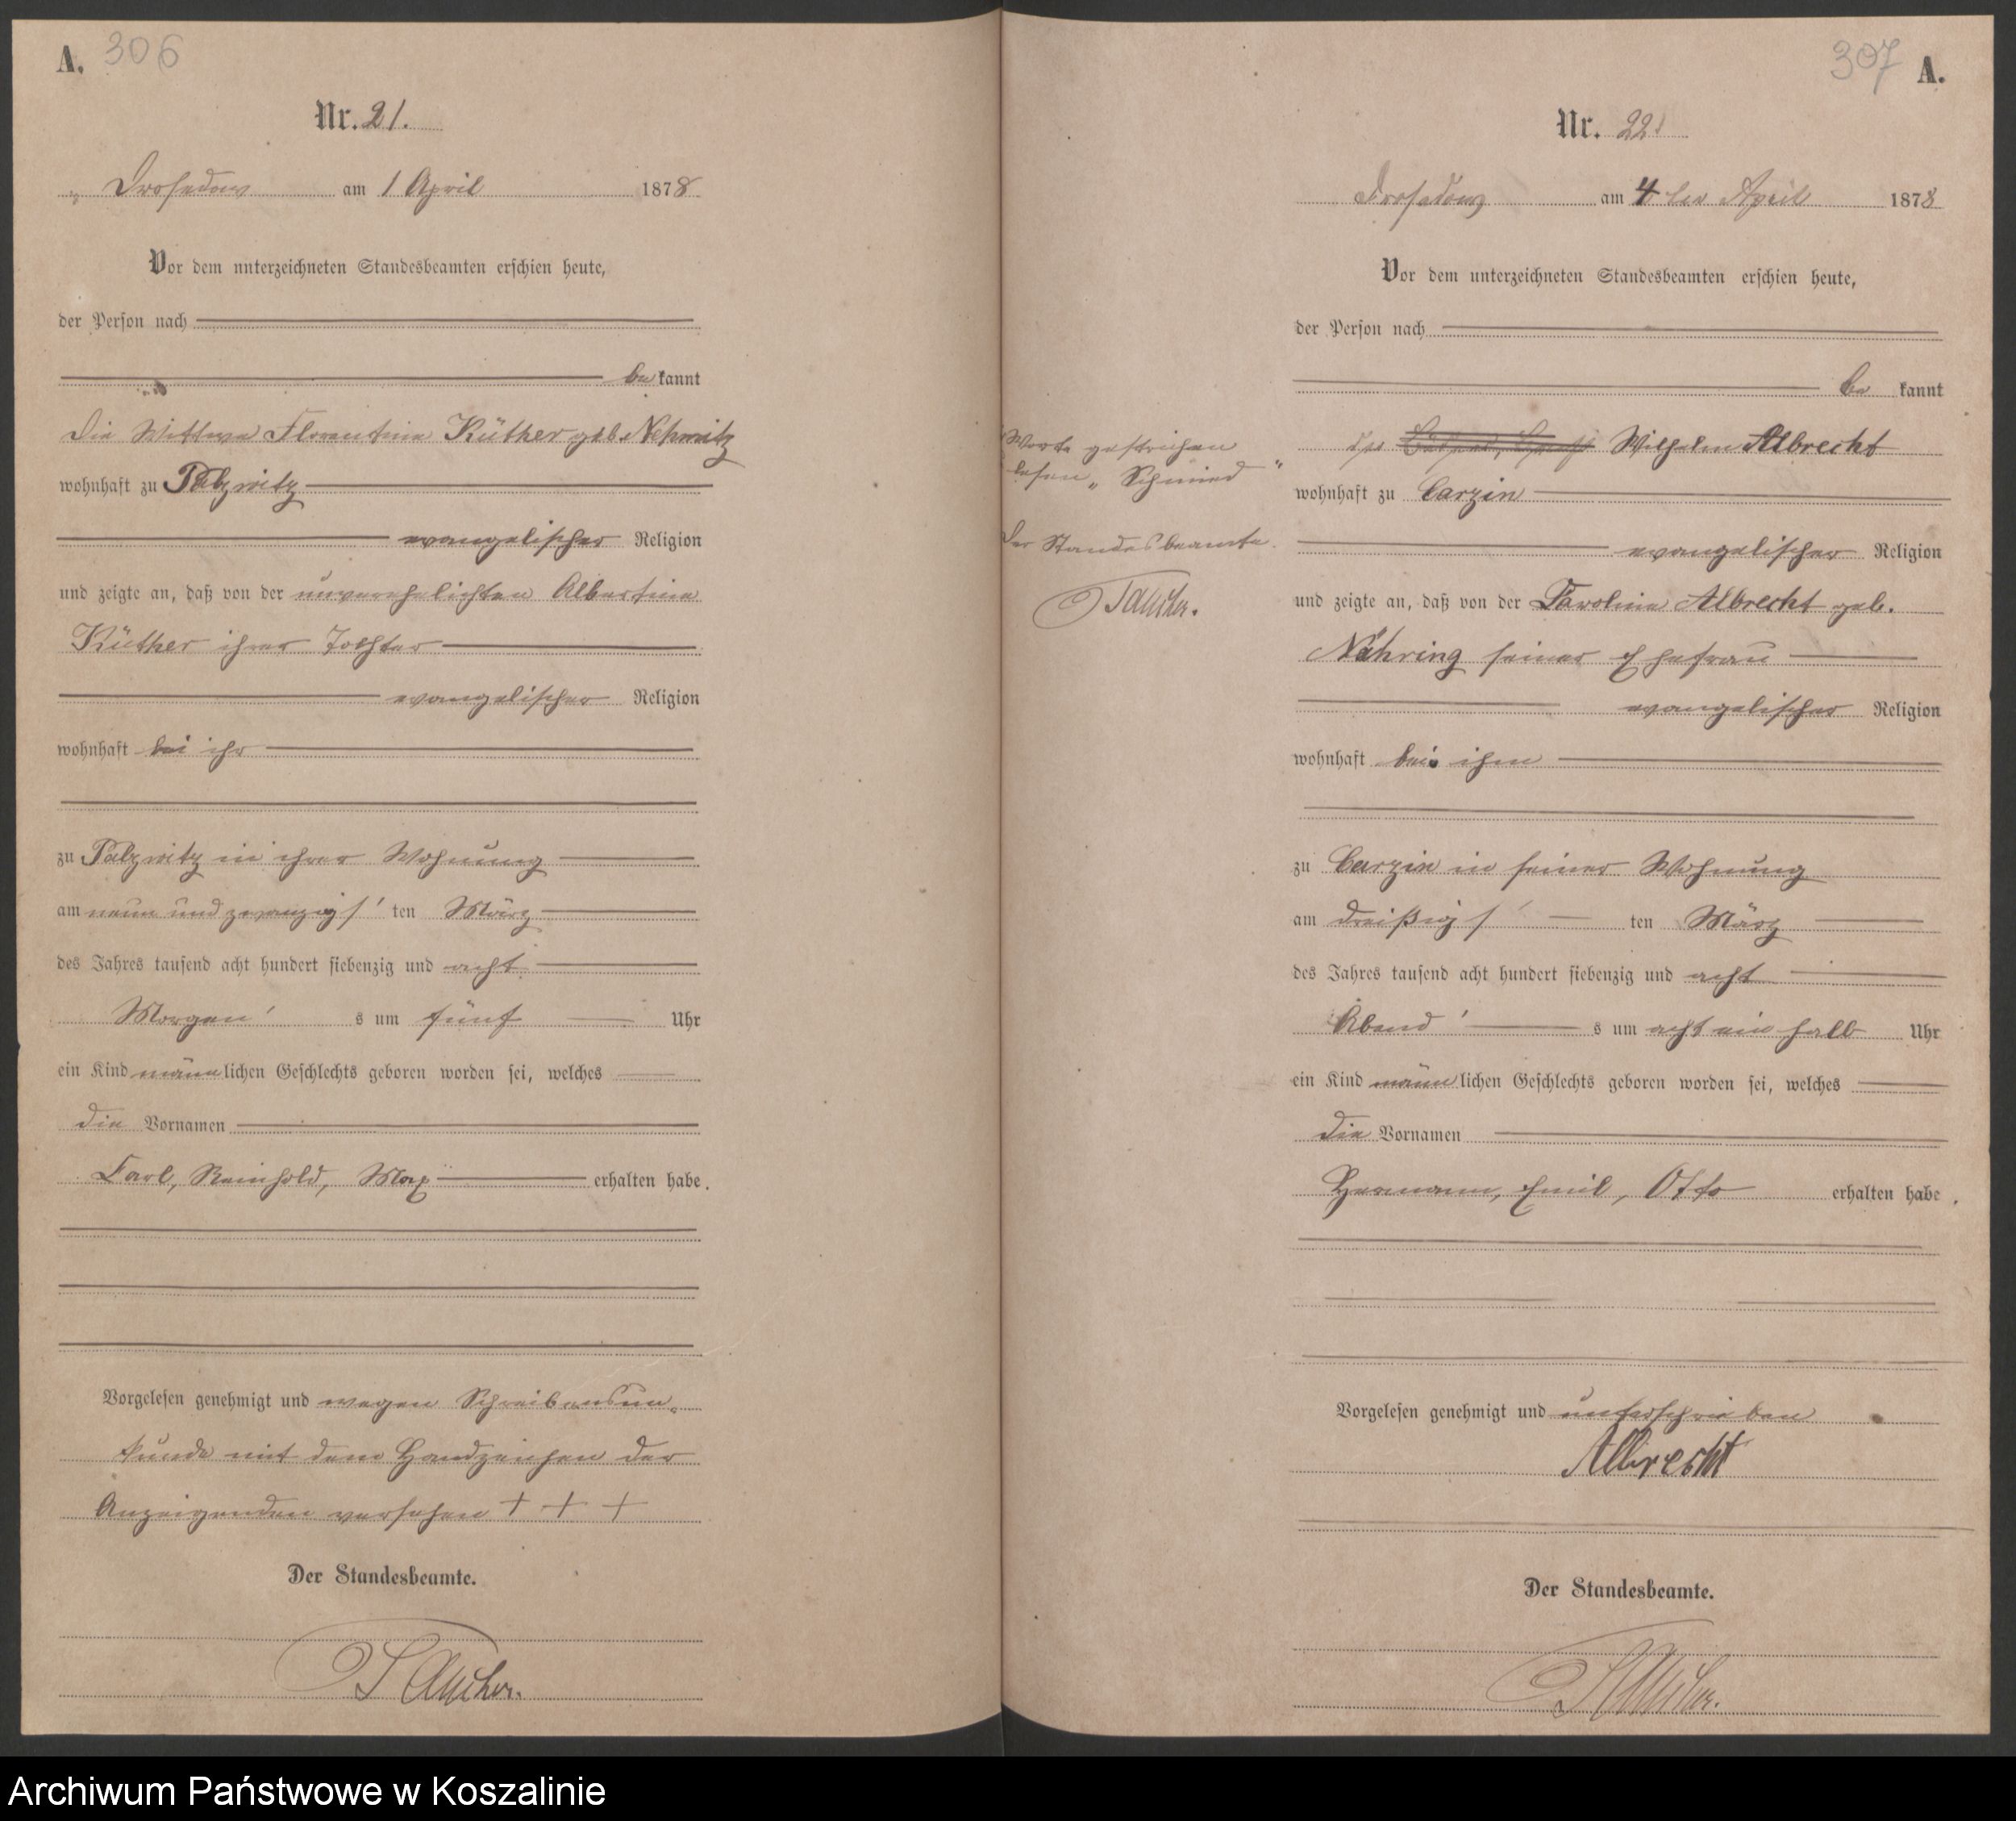 A. 306
Nr. 21.
Drosedow am 1 April 1878
Vor dem unterzeichneten Standesbeamten erschien heute,
der Person nach
bekannt
die Wittwe Florentine Küther geb.
wohnhaft zu Palzwitz
evangelischer Religion
und zeigte an, daß von der unverehelichten Albertine
Küther ihrer Tochter
evangelischer Religion
wohnhaft bei ihr
zu Palzwitz in ihrer Wohnung
am neun und zwanzigs' ten März
des Jahres tausend acht hundert siebenzig und acht
Morgen' s um fünf Uhr
ein Kind männlichen Geschlechts geboren worden sei, welches
die Vornamen
Carl, Reinhold, Max erhalten habe.
Vorgelesen genehmigt und wegen Schreibensun-
kunde mit dem Handzeichen der
Anzeigenden versehen + + +
Der Standesbeamte.
Tauscher.
307 A.
Nr. 22.
Drosedow am 4 ten April 1878
Vor dem unterzeichneten Standesbeamten erschien heute,
der Person nach
be kannt
der Wilhelm Albrecht
wohnhaft zu Carzin
evangelischer Religion
und zeigte an, daß von der Caroline Albrecht geb.
Nähring seiner Ehefrau
evangelischer Religion
wohnhaft bei ihm
zu Carzin in seiner Wohnung
am dreißigs' ten März
des Jahres tausend acht hundert siebenzig und acht
Abend' s um acht ein halb Uhr
ein Kind männlichen Geschlechts geboren worden sei, welches
die Vornamen
Hermann, Emil, Otto erhalten habe.
Vorgelesen genehmigt und unterschrieben
Albrecht
Der Standesbeamte.
Tauscher.
Worte gestrichen
lesen „Schmied"
Der Standesbeamte.
Tauscher.
Archiwum Państwowe w Koszalinie